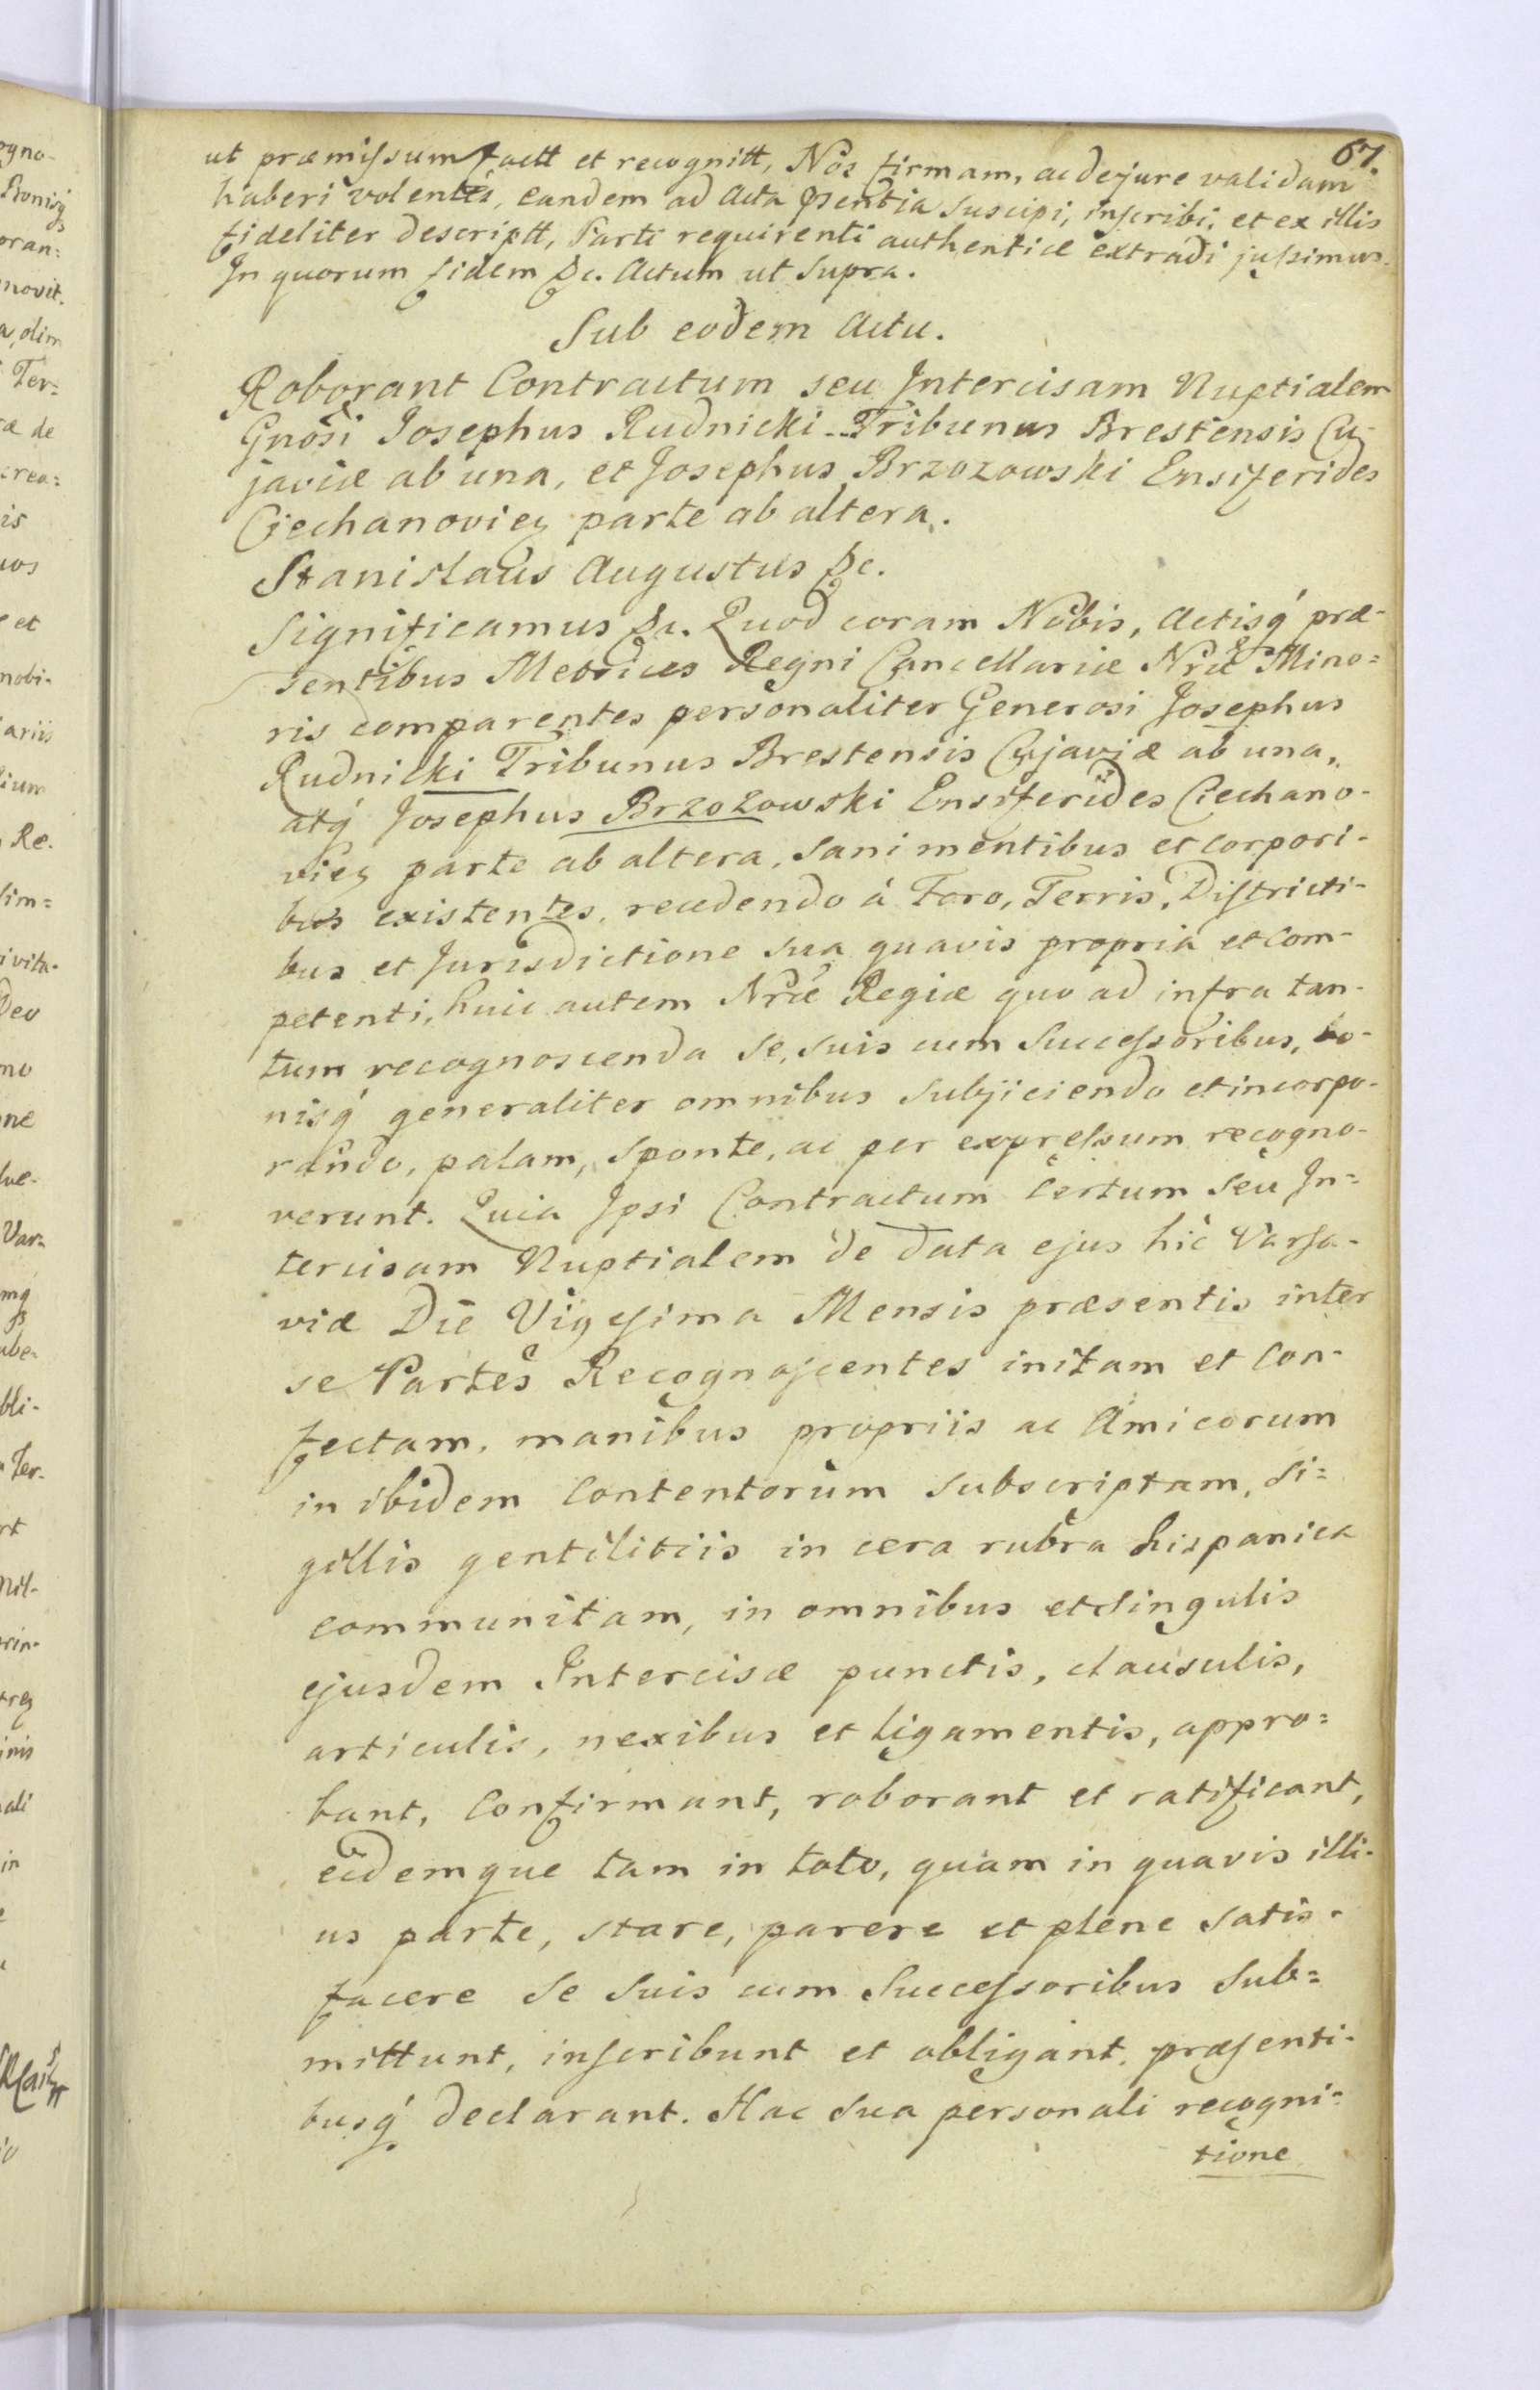 67.
ut præmissum factt et recognitt, Nos firmam, ac de jure validam
haberi volentes, eandem ad Acta pñtia suscipi, inscribi, et ex illis
fideliter descriptt, Parti requirenti authentice extradi jussimus.
In quorum fidem &c. Actum ut supra.
Sub eodem Actu.
Roborant Contractum seu Intercisam Nuptialem
Gnosi Josephus Rudnicki Tribunus Brestensis Cu-
javiæ ab una, et Josephus Brzozowski Ensiferides
Ciechanovieñ parte ab altera.
Stanislaus Augustus &c.
Significamus &c. Quod coram Nobis, Actisq́ præ-
sentibus Metrices Regni Cancellariæ Nræ Mino=
ris comparentes personaliter Generosi Josephus
Rudnicki Tribunus Brestensis Cujaviæ ab una,
atq́ Josephus Brzozowski Ensiferides Ciechano-
vieñ parte ab altera, sani mentibus et corpori-
bus existentes, recedendo á Foro, Terris, Districti-
bus et Jurisdictione sua quavis propria et com-
petenti, huic autem Nræ Regiæ quo ad infra tan-
tum recognoscenda se, suis cum Successoribus, bo-
nisq́ generaliter omnibus subjiciendo et incorpo-
rando, palam, sponte, ac per expressum recogno-
verunt. Quia Ipsi Contractum certum seu In=
tercisam Nuptialem de data ejus hic Varsa-
viæ Die Vigesima Mensis præsentis inter
se Partes Recognoscentes initam et con-
fectam, manibus propriis ac Amicorum
in ibidem contentorum subscriptam, si=
gillis gentilitiis in cera rubra hispanica
communitam, in omnibus et singulis
ejusdem Intercisæ punctis, clausulis,
articulis, nexibus et ligamentis, appro=
bant, confirmant, roborant et ratificant,
eidemque tam in toto, quam in quavis illi-
us parte, stare, parere et plene satis-
facere se suis cum Successoribus sub=
mittunt, inscribunt et obligant, præsenti-
busq́ declarant. Hac sua personali recogni-
tione